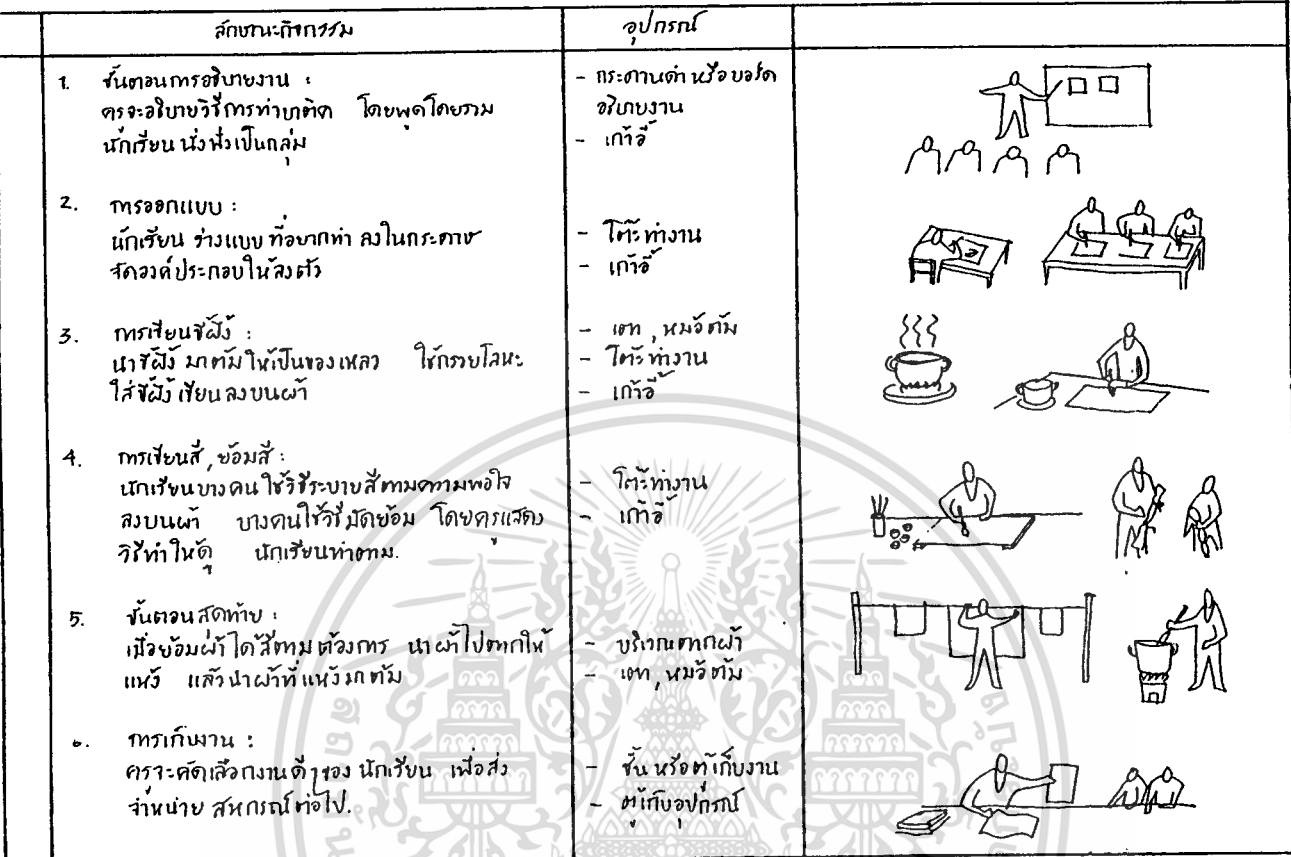 ลักษณะกิจกรรม
อุปกรณ์
1. ขั้นตอนการอธิบายงาน :
ครูจะอธิบายวิธีการทำบาติค โดยพูดโดยรวม
นักเรียน นั่งฟังเป็นกลุ่ม
- กระดานดำ หรือ บอร์ด
อธิบายงาน
- เก้าอี้
2. การออกแบบ :
นักเรียน ร่างแบบ ที่อยากทำ ลงในกระดาษ
จัดองค์ประกอบให้ลงตัว
- โต๊ะทำงาน
- เก้าอี้
3. การเขียนขี้ผึ้ง :
นำขี้ผึ้ง มาต้ม ให้เป็นของเหลว ใช้กรวยโลหะ
ใส่ขี้ผึ้ง เขียน ลงบนผ้า
- เตา , หม้อต้ม
- โต๊ะทำงาน
- เก้าอี้
4. การเขียนสี , ย้อมสี :
นักเรียนบางคน ใช้วิธีระบายสีตามความพอใจ
ลงบนผ้า บางคนใช้วิธีมัดย้อม โดยครูแสดง
วิธีทำให้ดู นักเรียนทำตาม.
- โต๊ะทำงาน
- เก้าอี้
5. ขั้นตอนสุดท้าย :
เมื่อย้อมผ้าได้สีตามต้องการ นำผ้าไปตากให้
แห้ง แล้วนำผ้าที่แห้งมาต้ม
- บริเวณตากผ้า
- เตา , หม้อต้ม
๖. การเก็บงาน :
ครูจะคัดเลือกงานดีๆของ นักเรียน เพื่อส่ง
จำหน่าย สหกรณ์ต่อไป.
- ชั้น หรือตู้เก็บงาน
- ตู้เก็บอุปกรณ์